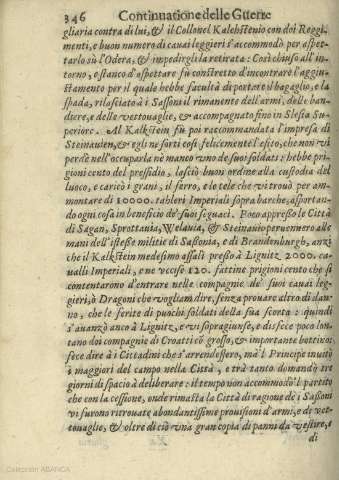 346 Continuatione delle Guerre
gliaria contra di lui, & il Collonel Kalchstenio con doi Reggi-
menti, e buon numero di cauai leggieri s'accommodò per aspet-
tarlo sù l'Odera, & impedirgli la retirata: Così chiuso all'in-
torno, e stanco d'aspettare fù constretto d'incontrar l'aggiu-
stamento per il quale hebbe facultà di portare il bagaglio, e la
spada, rilasciato à i Sassoni il rimanente dell'armi, delle ban-
diere, e delle vettouaglie, & accompagnato fino in Slesia Su-
periore. Al Kalkstein fù poi raccommandata l'impresa di
Steinauien, & egli ne sortì così felicemente l'esito, che non vi
perdè nell'occuparla nè manco vno de suoi soldati: hebbe pri-
gioni cento del pressidio, lasciò buon ordine alla custodia del
luoco, e caricò i grani, il ferro, e le tele che vi trouò per am-
montare di 10000. tahleri Imperiali sopra barche, asportan-
do ogni cosa in beneficio de' suoi seguaci. Poco appresso le Città
di Sagan, Sprottania, Welauia, & Steinauio peruennero alle
mani dell'istesse militie di Sassonia, e di Brandenburgh, anzi
che il Kalkstein medesimo assalì presso à Lignitz 2000. ca-
ualli Imperiali, e ne vccise 120. fattine prigioni cento che si
contentarono d'entrare nelle compagnie de' suoi cauai leg-
gieri, ò Dragoni che vogliam dire, senza prouare altro di dan-
no, che le ferite di puochi soldati della sua scorta: quindi
s'auanzò anco à Lignitz, e vi sopragiunse, e disfece poco lon-
tano doi compagnie di Croatti cō grosso, & importante bottino:
fece dire à i Cittadini che s'arrendessero, mà 'l Principe inuitò
i maggiori del campo nella Città, e trà tanto domandò tre
giorni di spacio à deliberare: il tempo non accommodò 'l partito
che con la cessione, onde rimasta la Città di ragione de i Sassoni
vi furono ritrouate abondantissime prouisioni d'armi, e di vet-
touaglie, & oltre di ciò vna gran copia di panni da vestire, e
di
Colección ABANCA